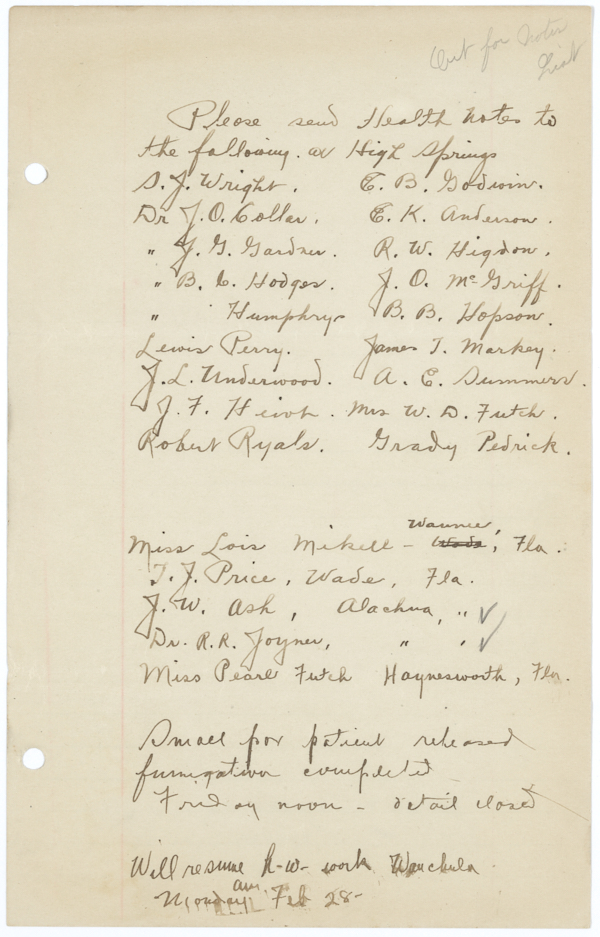 Out for Notes
List
Please send Health Notes to
the following. at High Springs
S. J. Wright. E. B. Godwin.
Dr J. O. Collar. E. K. Anderson.
" J. G. Gardner. R. W. Higdon.
" B. C. Hodges. J. O. McGriff.
" Humphrys B. B. Hopson.
Lewis Perry. James T. Markey.
J. L. Underwood. A. E. Summers.
J. F. Mrs W. D. Futch.
Robert Ryals. Grady Pedrick.
Wannee,
Miss Lois Mikell - Wade, Fla.
T. J. Price, Wade, Fla.
J. W. Ash, Alachua, " ✓
Dr. R. R. Joyner, " " ✓
Miss Pearl Futch Haynesworth, Fla.
Small pox patient released
fumigation completed
Friday noon - detail closed
Will resume work Wauchula
am
Monday Feb 28-